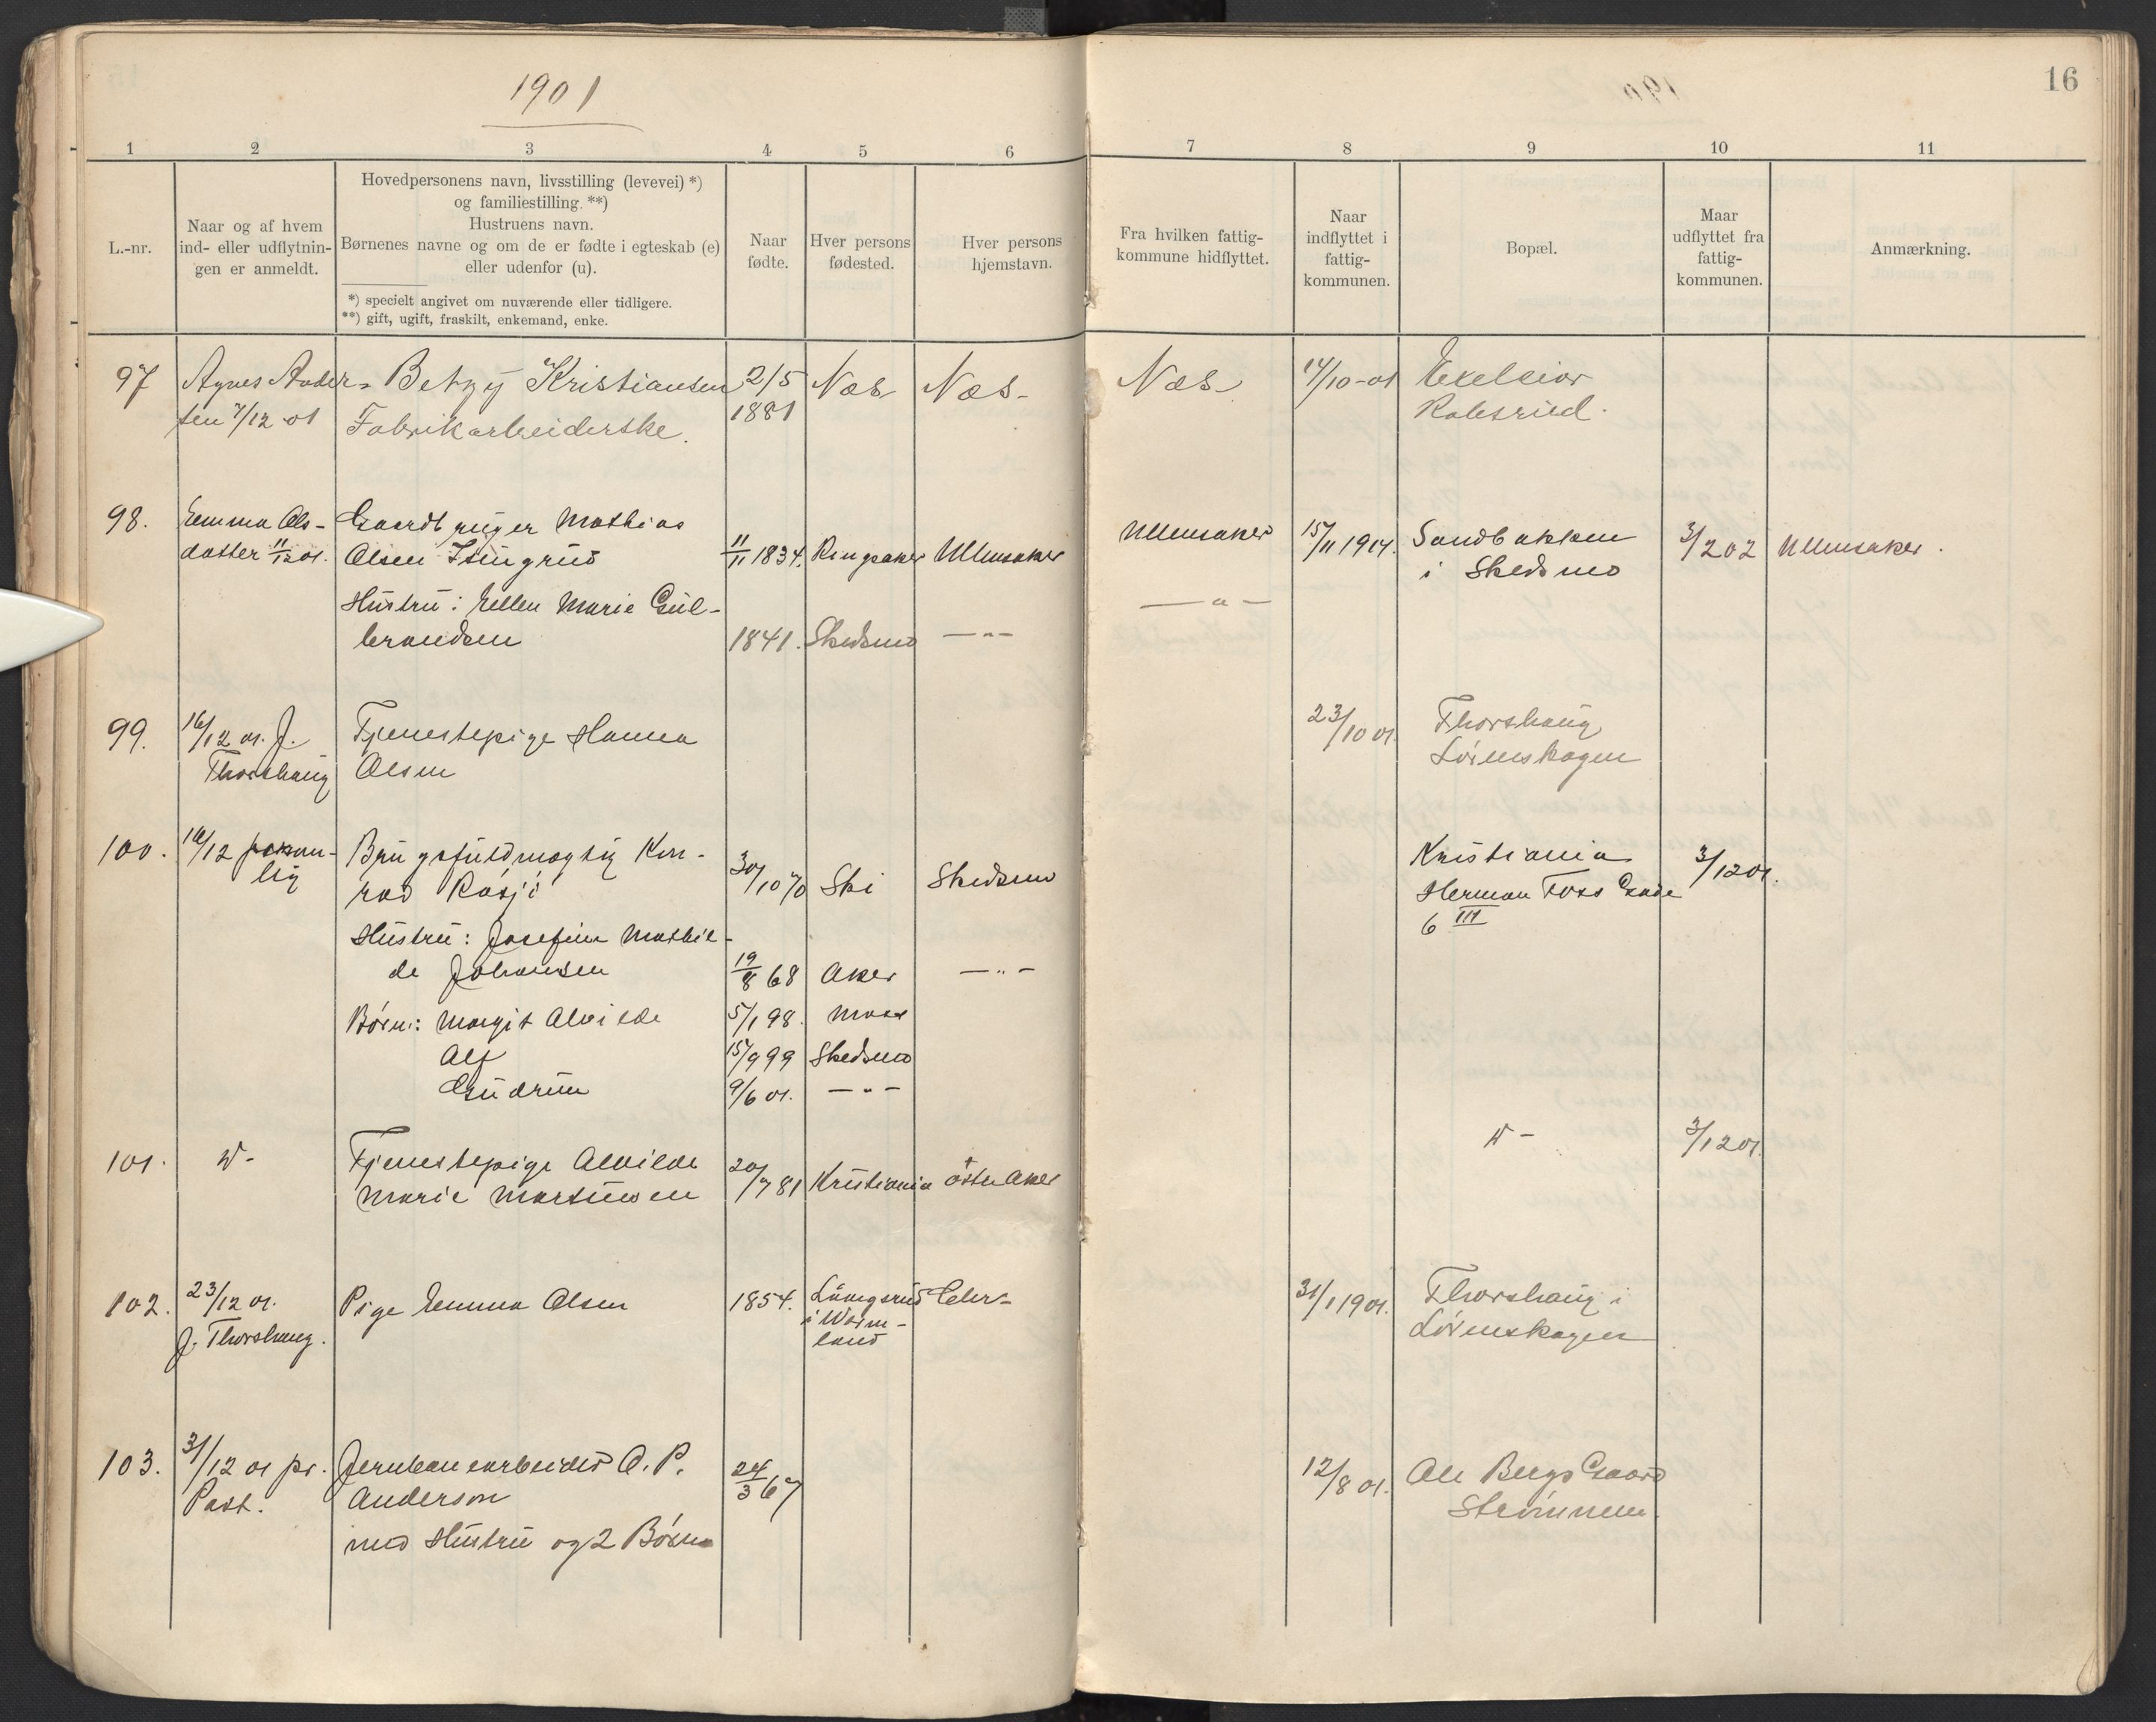 1901
16
1 2 3 4 5 6 7 8 9 10 11
L.-nr.
Naar og af hvem
ind- eller udflytnin-
gen er anmeldt.
Hovedpersonens navn, livsstilling (levevei) *)
og familiestilling. **)
Hustruens navn.
Børnenes navne og om de er fødte i egteskab (e)
eller udenfor (u).
*) specielt angivet om nuværende eller tidligere.
**) gift, ugift, fraskilt, enkemand, enke.
Naar
fødte.
Hver persons
fødested.
Hver persons
hjemstavn.
Fra hvilken fattig-
kommune hidflyttet.
Naar
indflyttet i
fattig-
kommunen.
Bopæl.
Maar
udflyttet fra
fattig-
kommunen.
Anmærkning.
97 Agnes Ander- Betzy Kristiansen 2/5 Næs Næs- Næs 14/10-01 Exelsior
sen 7/12 01 Fabrikarbeiderske. 1881 Robsrud.
98. Emma Ols- Gaardbruger Mathias Ullensaker 15/11 1901 Sandbakken 3/2 02 Ullensaker.
datter 11/12 01. Olsen 11/11 1834. Ringsaker Ullensaker i Skedsmo
Hustru: Ellen Marie Gul- —"—
brandsen 1841. Skedsmo —"—
99. 16/12 01. J. Tjenestepige Hanna 23/10 01. Thorshaug
Thorshaug Olsen Lørenskogen
100. 16/12 person- Brugsfuldmægtig Kon- Kristiania 3/12 01.
lig rad Rasjø 30/10 70 Ski Skedsmo Herman Foss Gade
6 III
Hustru: Josefine Mathil-
de Johansen 19/8 68 Aker —"—
Børn: Margit Alvilde 5/1 98. Moss
Alf 15/9 99 Skedsmo
Gudrun 9/6 01. —"—
101. "- Tjenestepige Alvilde 20/7 81 Kristiania Østre Aker "- 3/12 01
Marie Martinsen
102. 23/12 01. Pige Emma Olsen 1854. 31/1 1901. Thorshaug i
J. Thorshaug. i Værm-
land Lørenskogen
103. 31/12 01 pr. Jernbanearbeider A. P. 24/3 67 12/8 01. Ole Bergs Gaard
Post. Anderson Strømmen.
med Hustru og 2 Børn